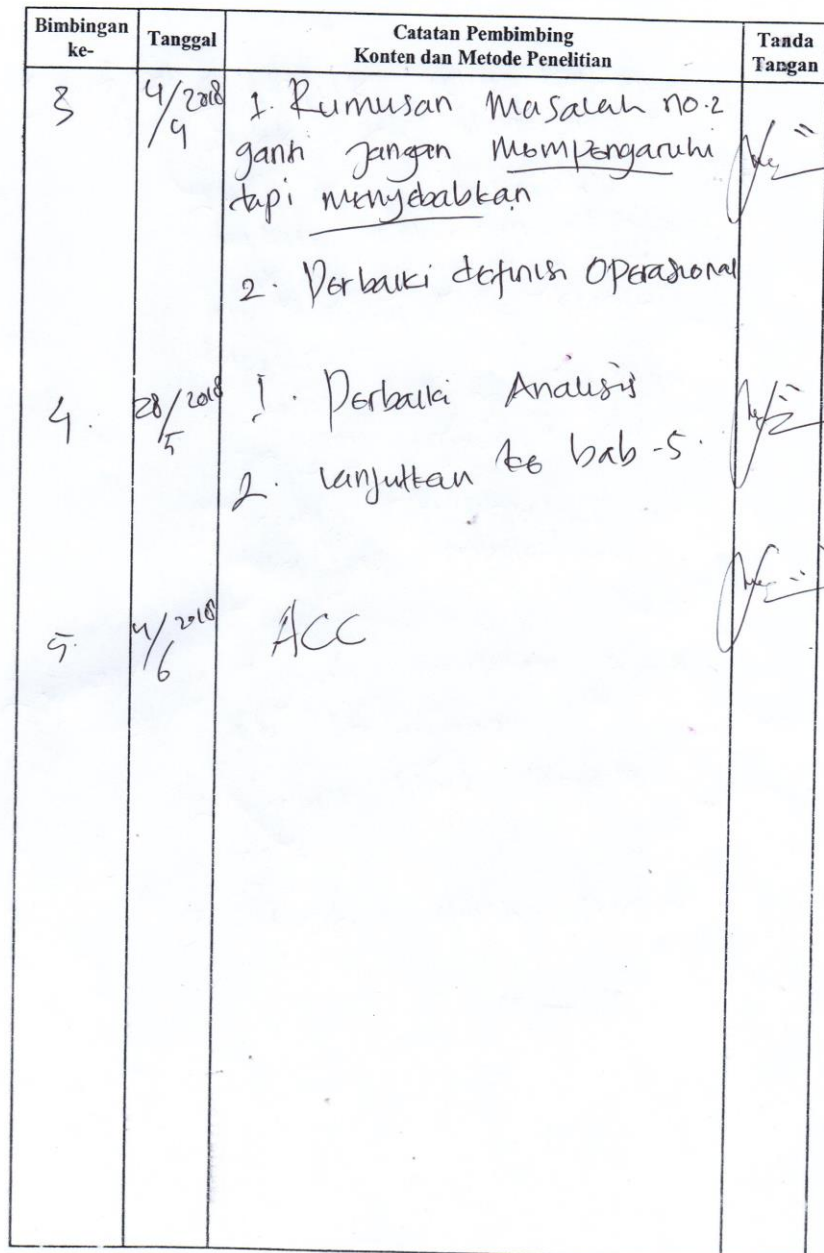 Bimbingan ke-
Tanggal
Catatan Pembimbing
Konten dan Metode Penelitian
Tanda Tangan
3
4/2018
/4
1. Rumusan Masalah no.2
ganti Jangan Mempengaruhi
tapi menyebabkan
2. Perbaiki definisi Operasional
4.
28/2018
/5
1. Perbaiki Analisis
2. lanjutkan ke bab-5.
5.
4/2018
/6
ACC